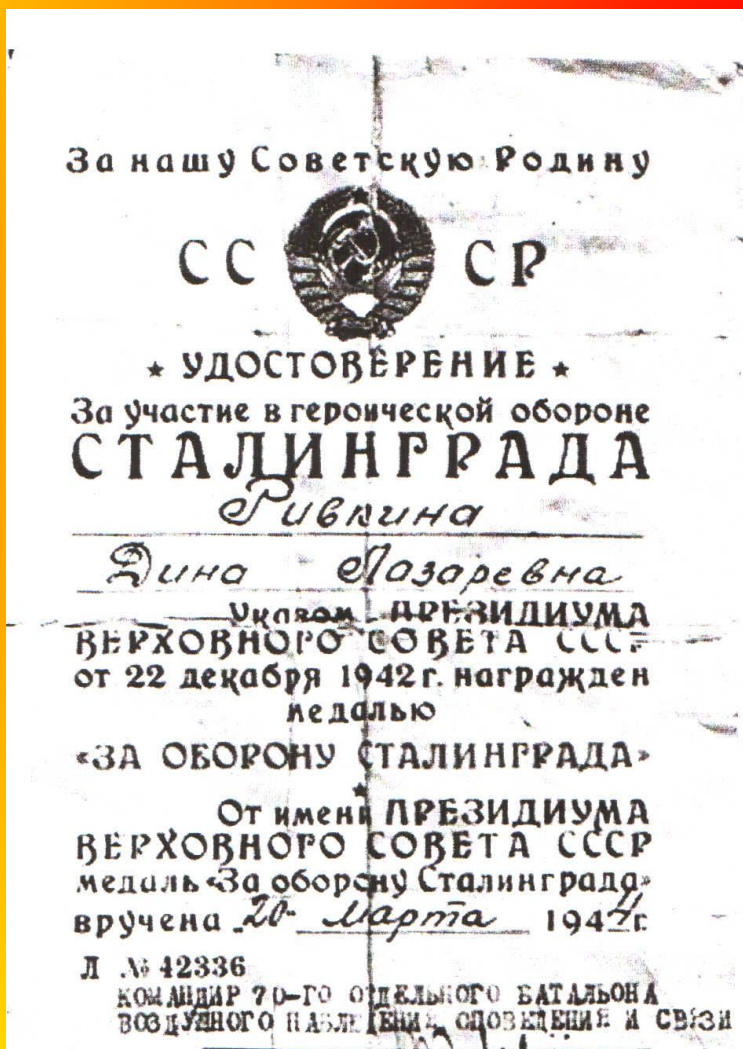 За нашу Советскую Родину
СС СР
★ УДОСТОВЕРЕНИЕ ★
За участие в героической обороне
СТАЛИНГРАДА
Ривкина
Дина Лазаревна
Указом ПРЕЗИДИУМА
ВЕРХОВНОГО СОВЕТА СССР
от 22 декабря 1942 г. награжден
медалью
«ЗА ОБОРОНУ СТАЛИНГРАДА»
От имени ПРЕЗИДИУМА
ВЕРХОВНОГО СОВЕТА СССР
медаль «За оборону Сталинграда»
вручена „20" марта 1944 г.
Л № 42336
КОМАНДИР 70-ГО ОТДЕЛЬНОГО БАТАЛЬОНА
ВОЗДУШНОГО НАБЛЮДЕНИЯ, ОПОВЕЩЕНИЯ И СВЯЗИ